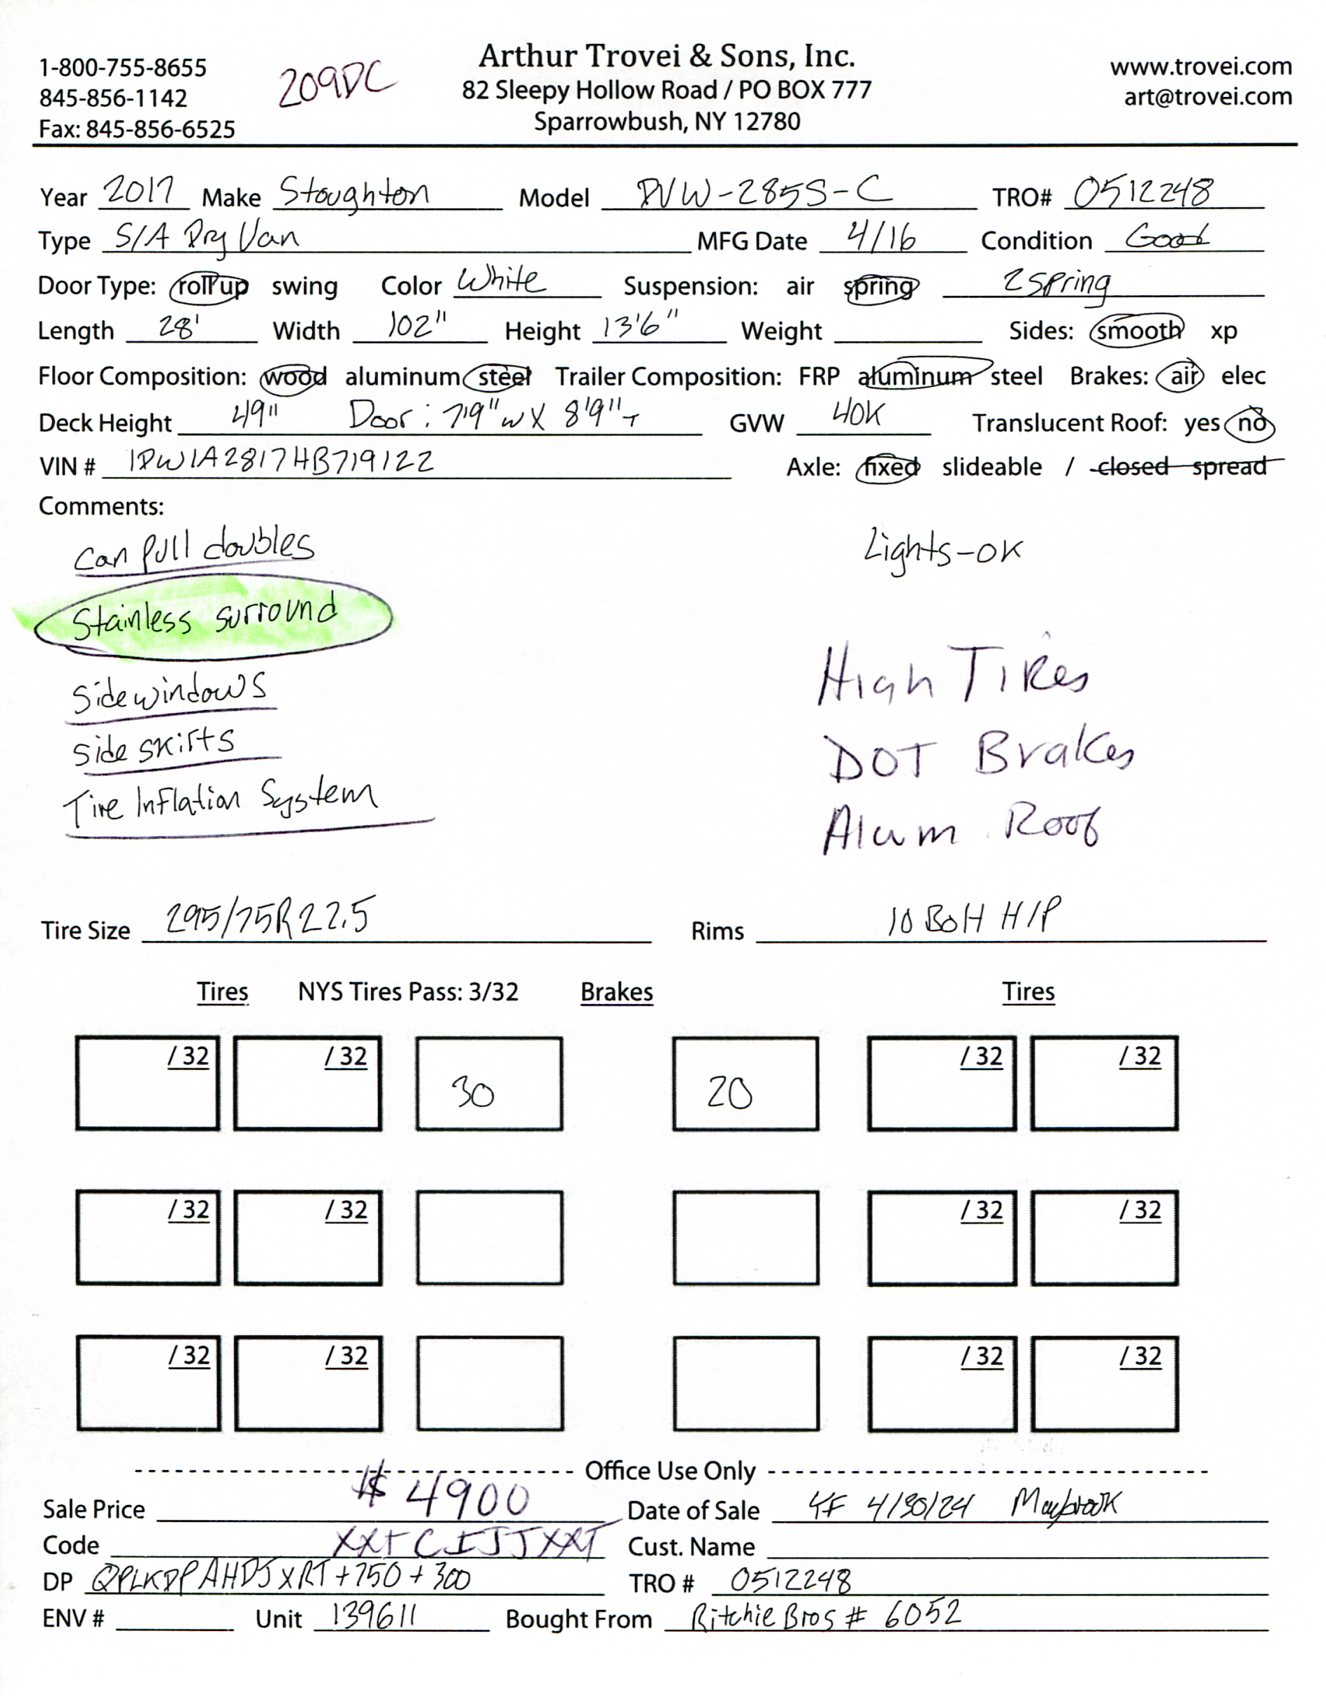 Arthur Trovei & Sons, Inc.
1-800-755-8655 209DC 82 Sleepy Hollow Road / PO BOX 777 www.trovei.com
845-856-1142 Sparrowbush, NY 12780 art@trovei.com
Fax: 845-856-6525
Year 2017 Make Stoughton Model DVW-285S-C TRO# 0512248
Type S/A Dry Van MFG Date 4/16 Condition Good
Door Type: roll up swing Color White Suspension: air spring 2 spring
Length 28' Width 102" Height 13'6" Weight Sides: smooth xp
Floor Composition: wood aluminum steel Trailer Composition: FRP aluminum steel Brakes: air elec
Deck Height 49" Door: 7'9"w X 8'9"T GVW 40K Translucent Roof: yes no
VIN # 1DW1A2817HB719122 Axle: fixed slideable / closed spread
Comments:
can pull doubles
Lights-OK
Stainless surround
Side windows
High Tires
Side skirts
DOT Brakes
Tire Inflation System
Alum Roof
Tire Size 295/75R22.5 Rims 10 BOH H/P
Tires NYS Tires Pass: 3/32 Brakes Tires
/ 32 / 32 30 20 / 32 / 32
/ 32 / 32 / 32 / 32
/ 32 / 32 / 32 / 32
Office Use Only
Sale Price $4900 Date of Sale 4/30/24 Maybrook
Code XXTCIJJXXT Cust. Name
DP QPLKDPAHDJXRT+750+300 TRO # 0512248
ENV # Unit 139611 Bought From Ritchie Bros # 6052